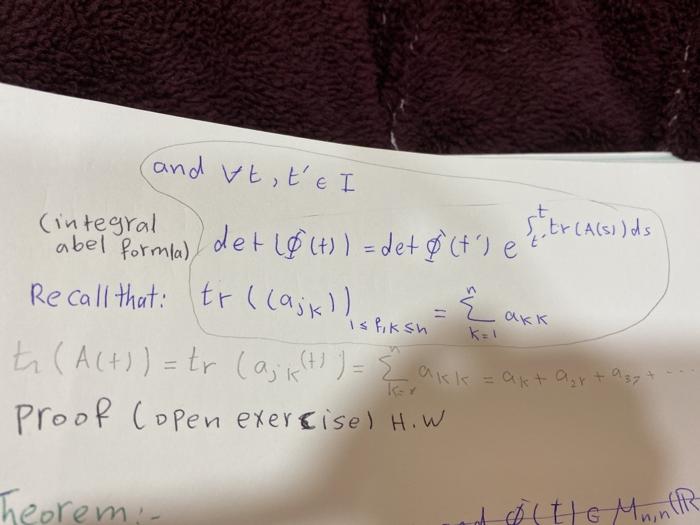 and ∀t, t' ∈ I
(integral abel formla) det(Φ(t)) = det Φ(t') e^{∫_{t'}^{t} tr(A(s))ds}
Recall that: tr((a_{jk}))_{1≤j,k≤n} = \sum_{k=1}^{n} a_{kk}
tr(A(t)) = tr(a_{jk}(t)) = \sum^{n} a_{kk} = + + + ...
Proof (open exercise) H.W
Theorem:-
Φ(t) ∈ M_{n,n}(ℝ